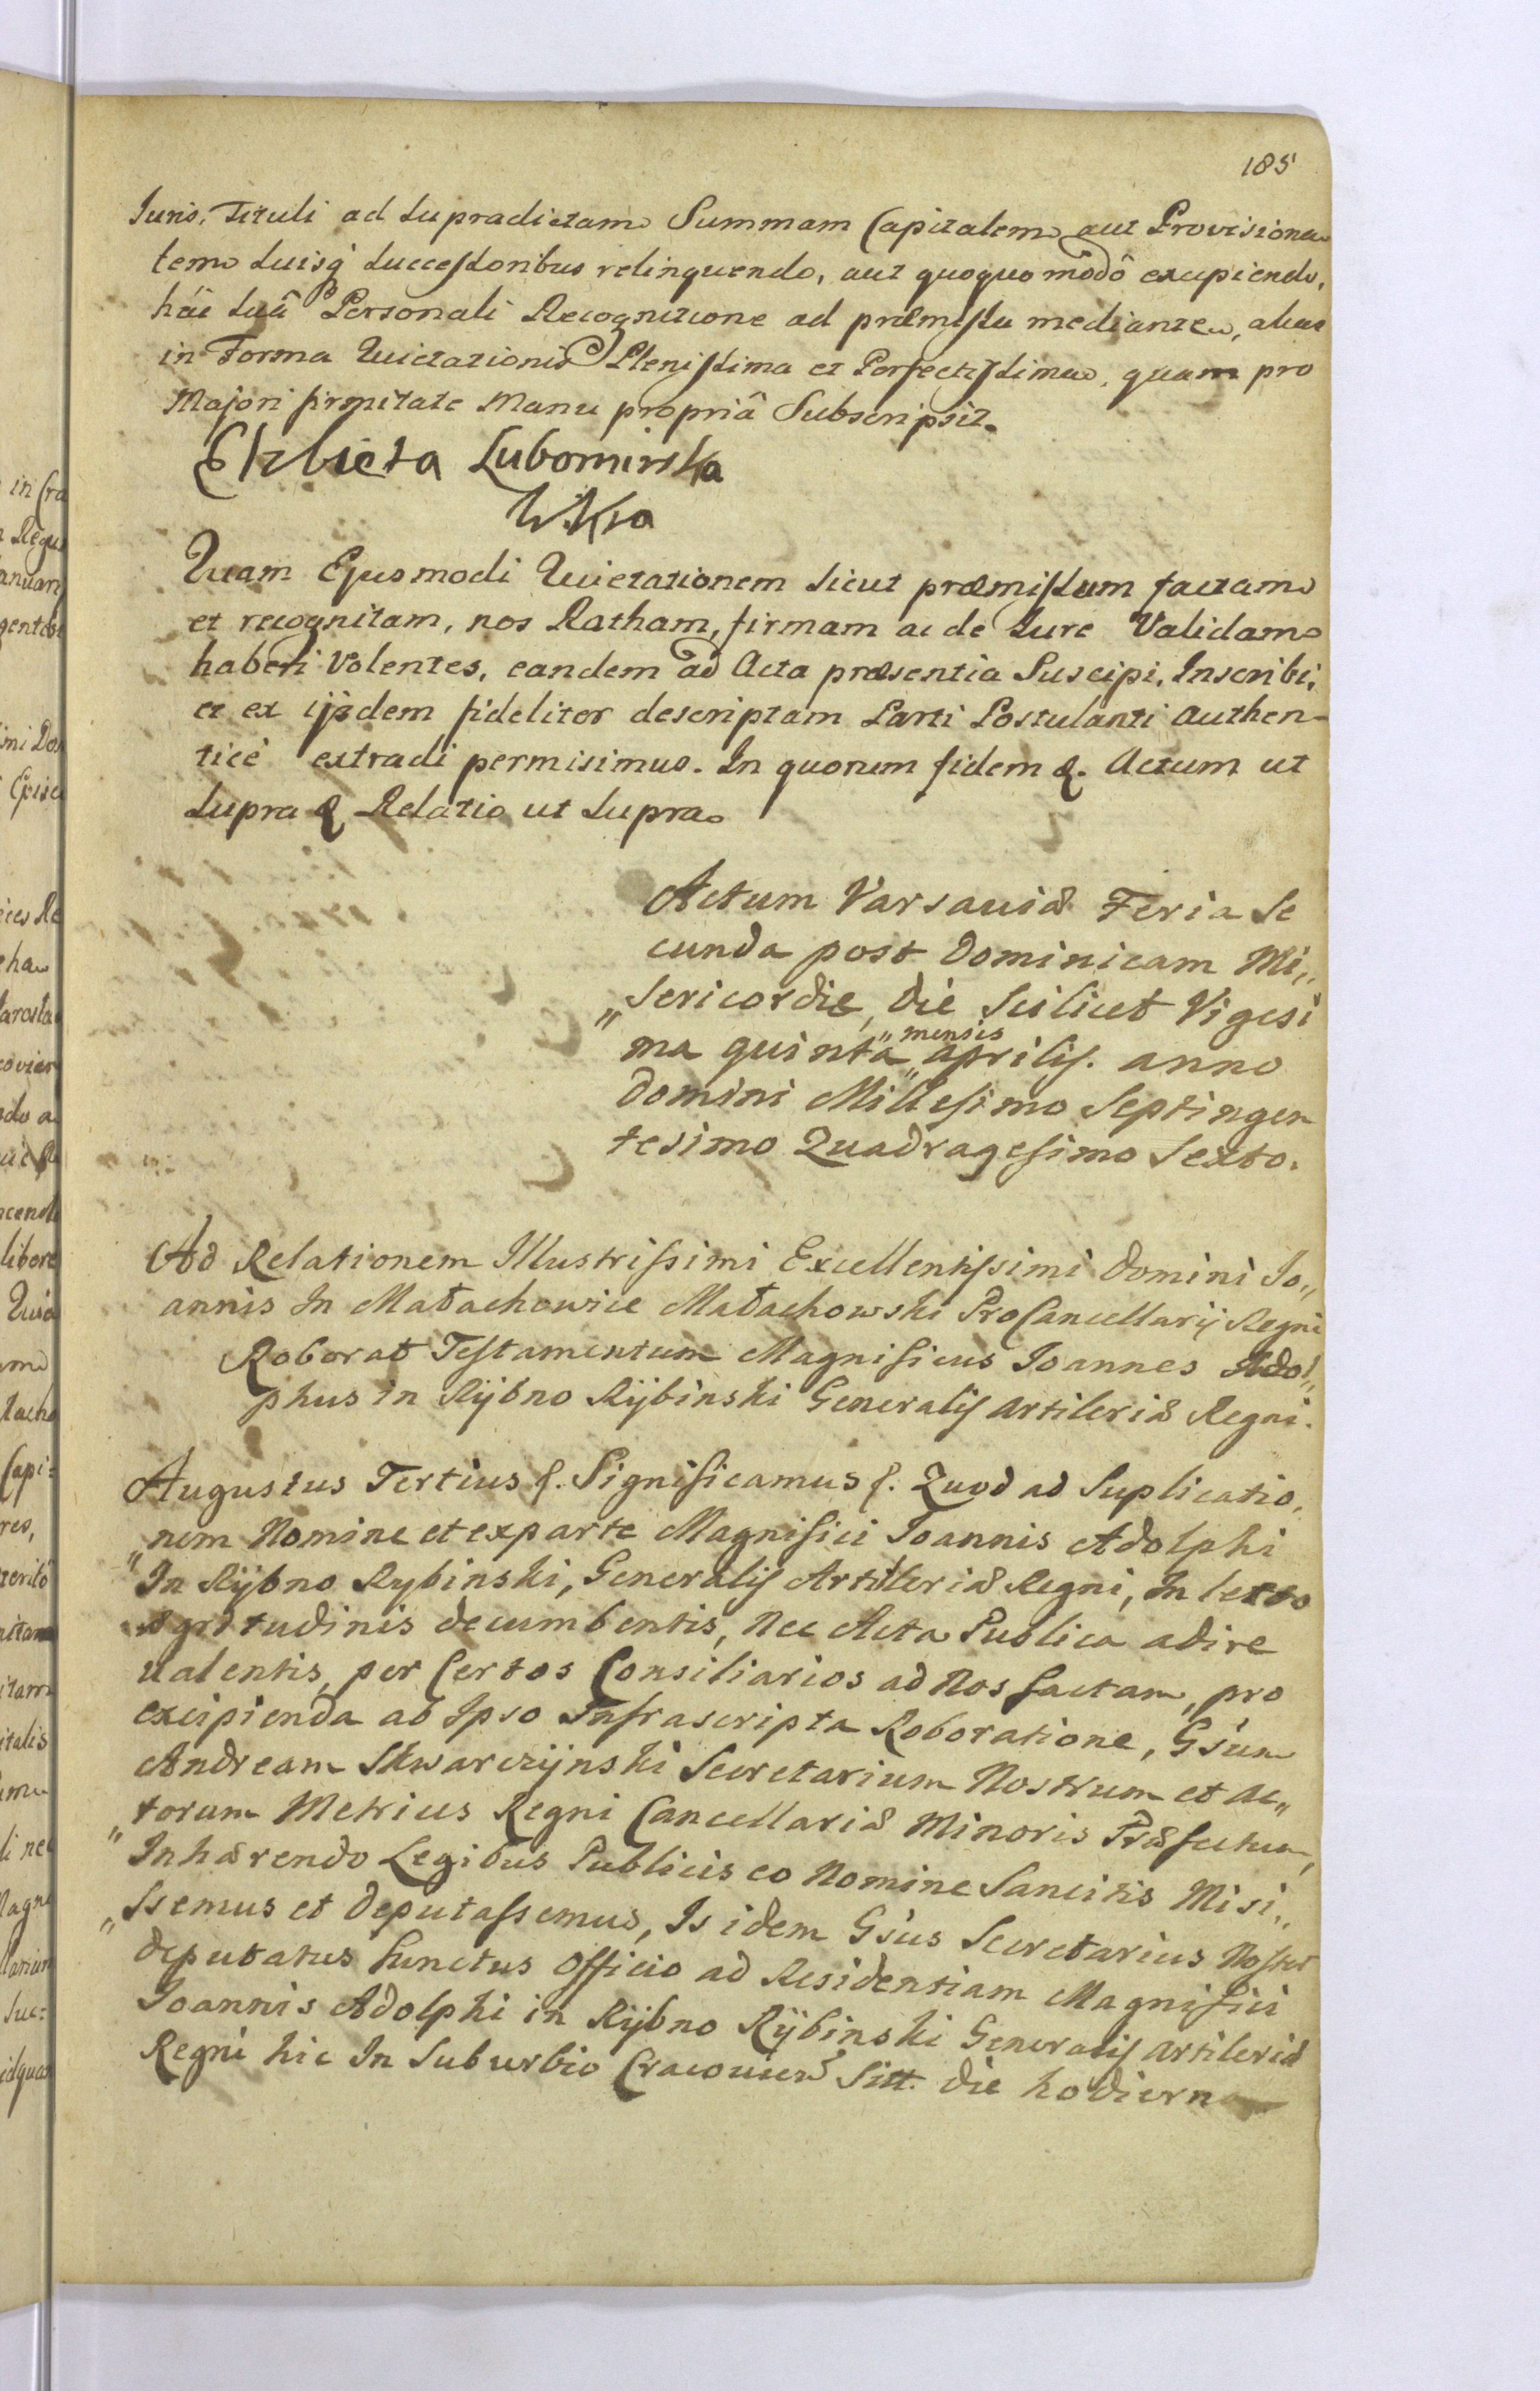 185
Iuris, Tituli ad supradictam Summam Capitalem aut Provisiona
lem suisq́ successoribus relinquendo, aut quoquo modô excipiendo,
hác suâ Personali Recognitione ad præmissa mediante, aliàs
in Forma Quietationis Plenissima et Perfectissima, quam pro
Majori firmitate Manu propriâ Subscripsit.
Elzbieta Lubomirska
Quam Ejusmodi Quietationem sicut præmissum factam
et recognitam, nos Ratham, firmam ac de Iure Validam
haberi Volentes, eandem ad Acta præsentia Suscipi, Inscribi,
et ex ijsdem fideliter descriptam Parti Postulanti Authen-
ticè extradi permisimus. In quorum fidem &. Actum ut
supra & Relatio ut supra.
Actum Varsaviæ Feria Se
cunda post Dominicam Mi,,
,,sericordiæ, die scilicet Vigesi
ma quinta ,,mensis,, aprilis. anno
Domini Millesimo Septingen
tesimo Quadragesimo Sexto.
Ad Relationem Illustrissimi Excellentissimi Domini Jo,,
annis In Małachowice Małachowski ProCancellarij Regni
Roborat Testamentum Magnificus Joannes Adol,,
phus in Rÿbno Rÿbinski Generalis Artileriæ Regni.
Augustus Tertius &. Significamus &. Quod ad Suplicatio,,
,,nem Nomine et ex parte Magnifici Joannis Adolphi
In Rÿbno Rybinski, Generalis Artileriæ Regni, In lecto
ægritudinis decumbentis, nec Acta Publica adire
valentis, per Certos Consiliarios ad Nos factam, pro
excipienda ab Ipso Infrascripta Roboratione, Gsum
Andream Skwarczÿnski Secretarium Nostrum et Ac,,
,,torum Metrices Regni Cancellariæ Minoris Præfectum,
Inhærendo Legibus Publicis eo Nomine Sancitis Misi,,
,,ssemus et Deputassemus, Is idem Gsus Secretarius Noster
deputatus functus Officio ad Residentiam Magnifici
Joannis Adolphi in Rÿbno Rÿbinski Generalis Artileriæ
Regni hic In Suburbio Cracovien Sitt. die hodierna